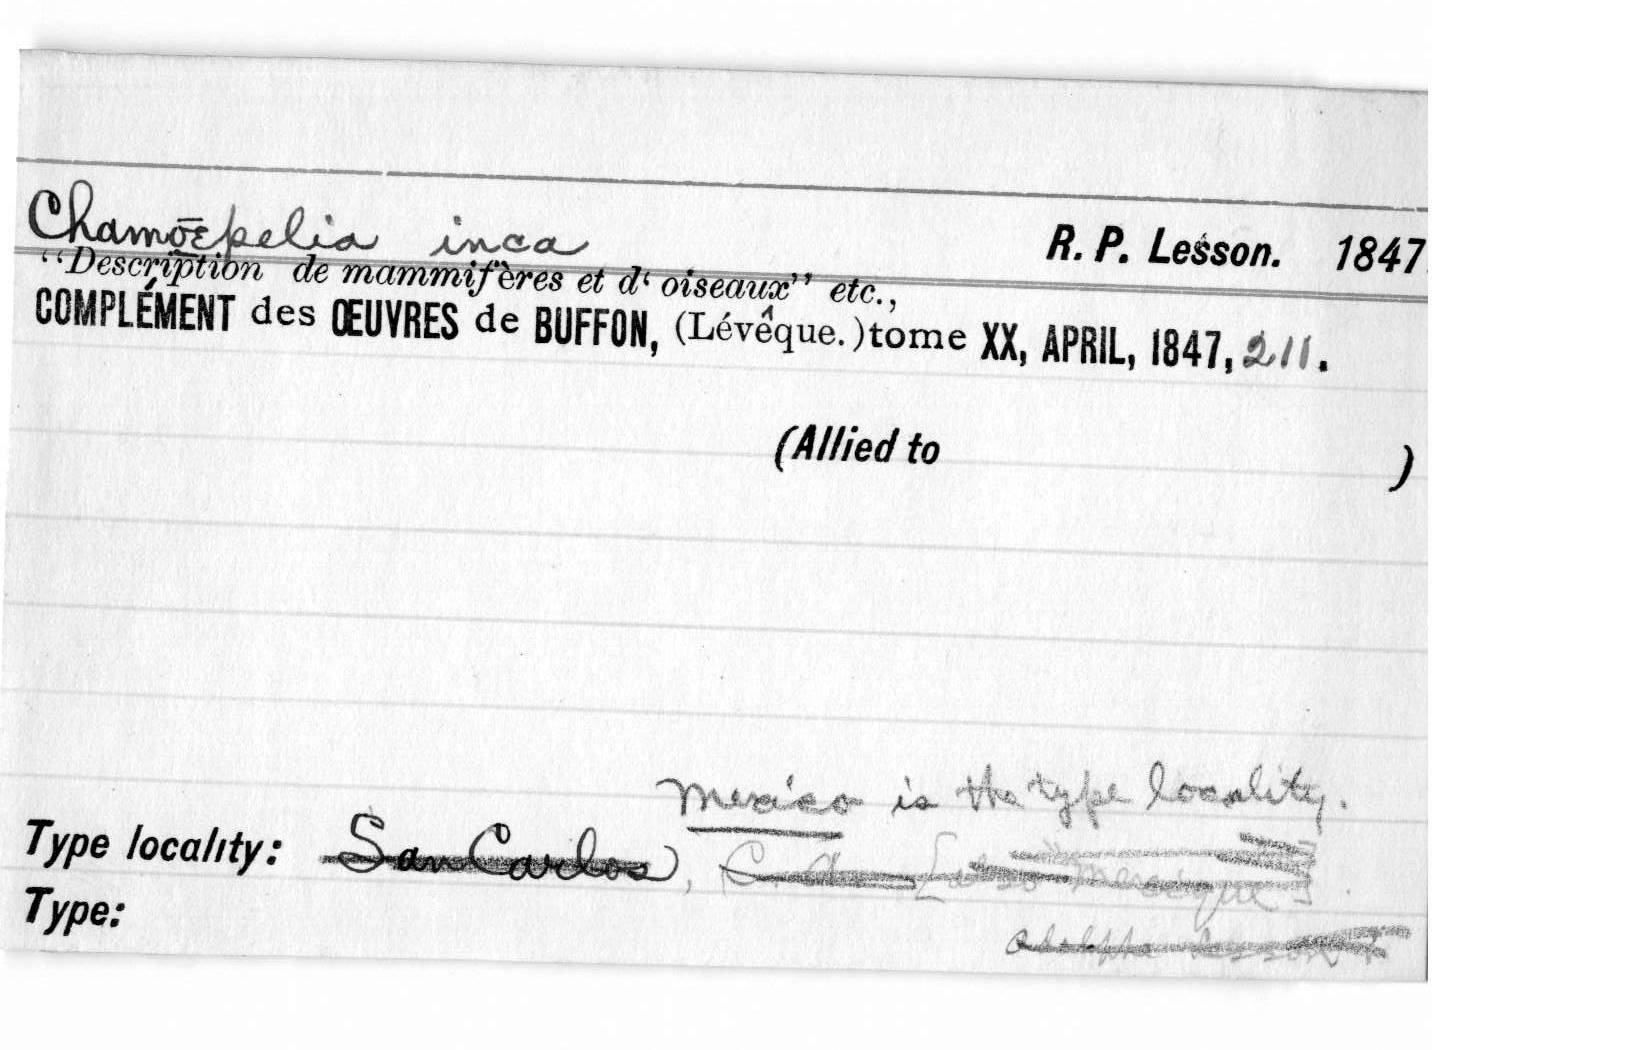 Chamœpelia inca R. P. Lesson. 1847.
“Description de mammifères et d‘ oiseaux” etc.,
COMPLÉMENT des ŒUVRES de BUFFON, (Lévêque.) tome XX, APRIL, 1847, 211.
(Allied to )
Mexico is the type locality.
Type locality: San Carlos, C. A. [also Mexique].
Type: